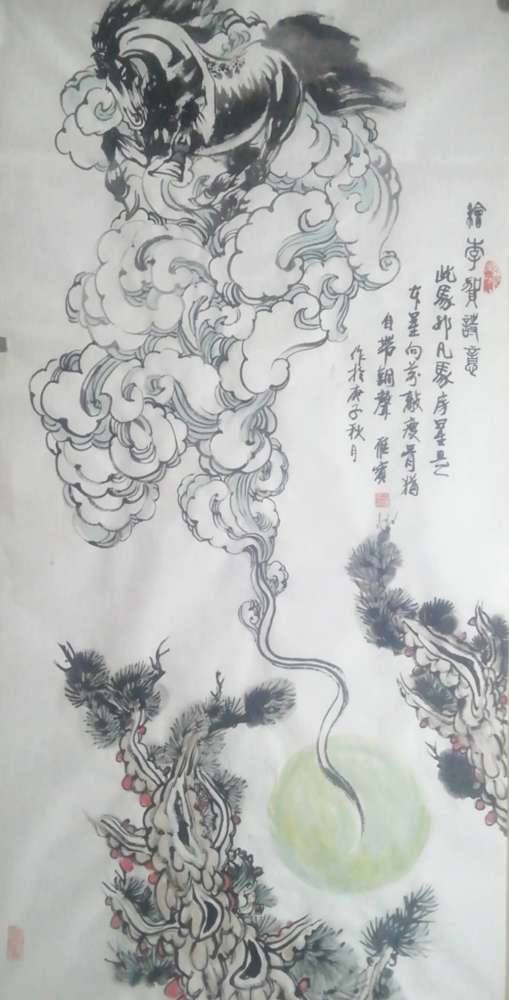 繪李賀詩意
此馬非凡馬房星是
本星向前敲瘦骨猶
自帶銅聲 雁賓
作於庚子秋月